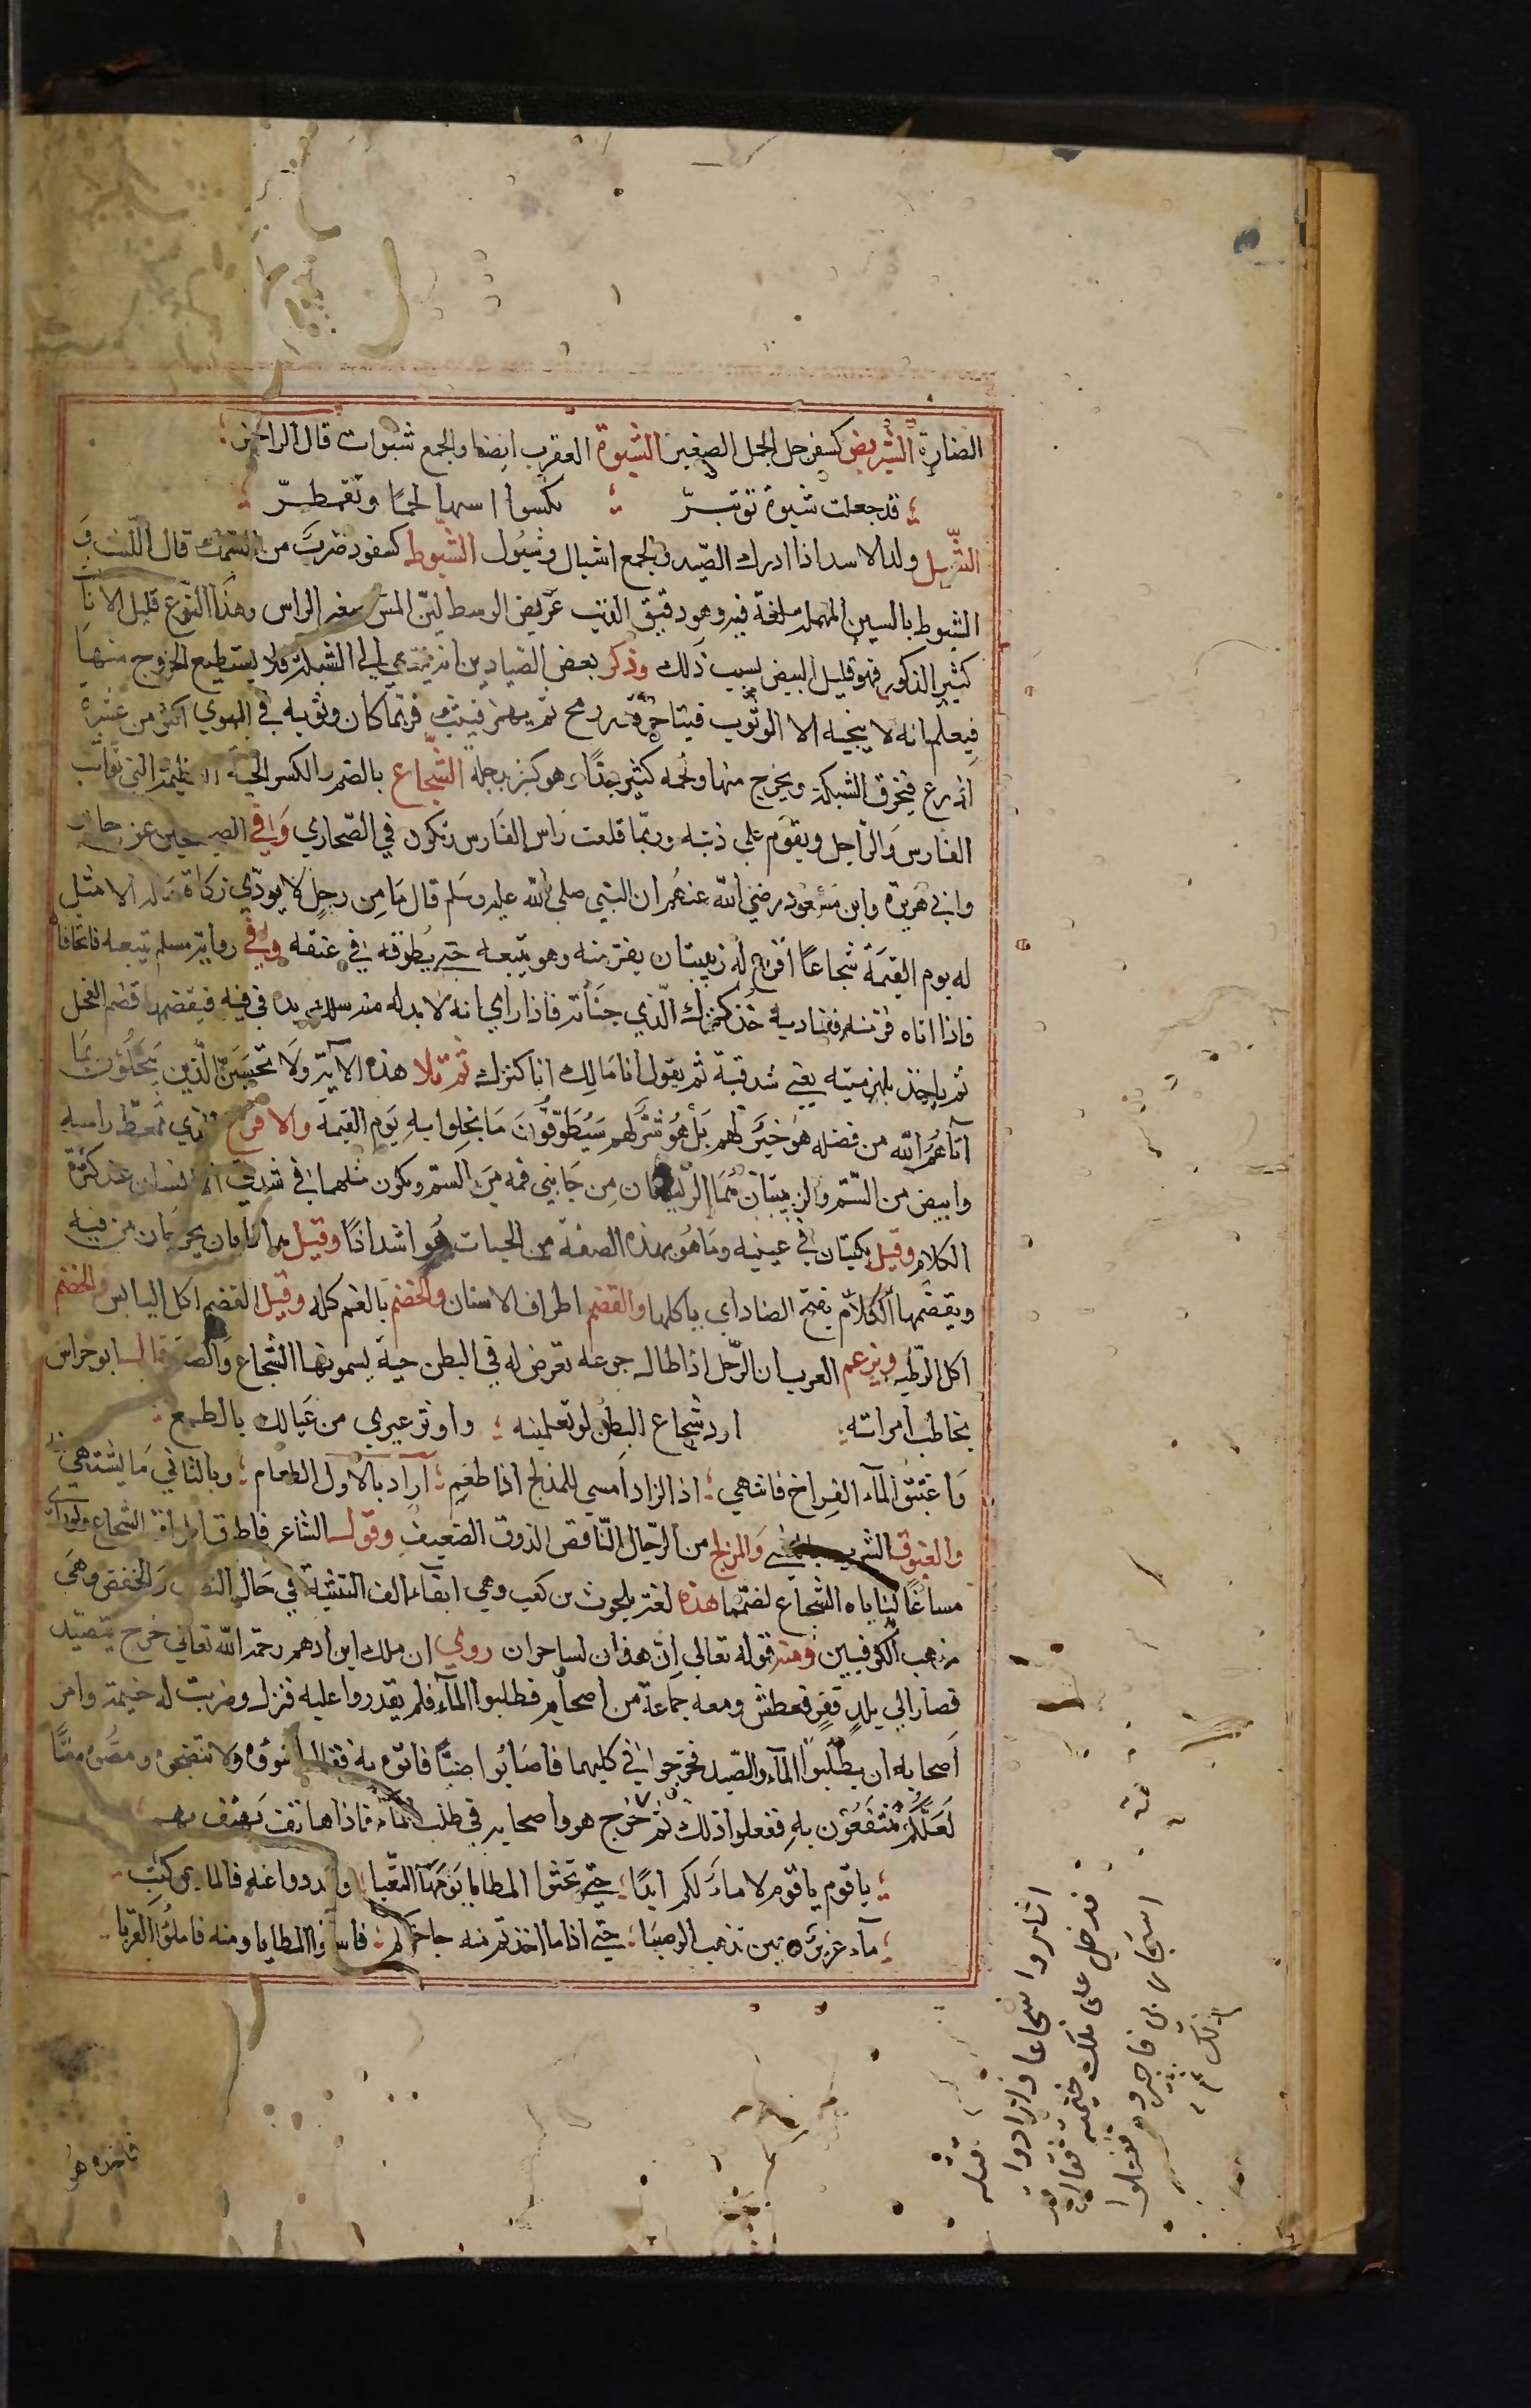 الضارة الشربض كسفرجل الجمل الصغير الشبوة العقرب ايضا والجمع شبوات قال الراجز
قد جعلت شبوة تزبئرّ ؛ تكسوا استها لحمًا وتقمطرّ
الشبل ولد الاسد اذا ادرك الصيد والجمع اشبال وشبول الشبوط كسفود ضرب من السمك قال الليث و
الشبوط بالسين المهملة لغة فيه وهو دقيق الذنب عريض الوسط لين المس صغير الراس وهذا النوع قليل الاناث
كثير الذكور فهو قليل البيض بسبب ذلك وذكر بعض الصيادين انه ينتهي الى الشبكة فلا يستطيع الخروج منها
فيعلم انه لا ينجيه الا الوثوب فيتاخر قدر رمح ثم يهمز فيثب فربما كان وثوبه في الهوي اكثر من عشرة
اذرع فيخرق الشبكة ويخرج منها ولحمه كثير جدًا وهو كثير بدجلة الشجاع بالضم والكسر الحية العظيمة التي تواثب
الفارس والراجل ويقوم على ذنبه وربما قلعت راس الفارس وتكون في الصحاري وفي الصحيحين عن جابر
وابي هريرة وابن مسعود رضي الله عنهم ان النبي صلى الله عليه وسلم قال ما من رجل لا يودي زكاة ماله الا مثل
له يوم القيمة شجاعًا اقرع له زبيبتان يفر منه وهو يتبعه حتى يطوقه في عنقه وفي رواية مسلم يتبعه فاتحا فاه
فاذا اتاه فر منه فيناديه خذ كنزك الذي خبأته فاذا راي انه لا بد له منه سلك يده في فيه فيقضمها قضم الفحل
ثم ياخذ بلهزمتيه يعني شدقيه ثم يقول انا مالك انا كنزك ثم تلا هذه الاية ولا تحسبن الذين يبخلون بما
آتاهم الله من فضله هو خير لهم بل هو شر لهم سيطوقون ما بخلوا به يوم القيمه والاقرع الذي تمعط راسه
وابيض من السم والزبيبتان هما الزبيدتان من جانبي فمه من السم ويكون مثلهما في شدقي الانسان عند كثرة
الكلام وقيل نكتتان في عينيه وما هو بهذه الصفة من الحيات هو اشد اذًا وقيل هما نابان يخرجان من فيه
ويقضمها الكلام بفتح الضاد اي ياكلها والقضم اطراف الاسنان والخضم بالفم كله وقيل القضم اكل اليابس والخضم
اكل الرطبه ويزعم العرب ان الرجل اذا طال جوعه تعرض له في البطن حية يسمونها الشجاع والصفر قال ابو خراش
يخاطب امراته ؛ ارد شجاع البطن لو تعلمينه ؛ واوثر غيري من عيالك بالطعم
واغتبق المآء القراح فانتهي ؛ اذ الزاد امسي للمزلج اذا طعم ؛ آراد بالاول الطعام ؛ وبالثاني ما يشتهي
والغبوق الشرب بالعشي والمزلج من الرجال الناقص الذوق الضعيف وقول الشاعر فاطرق اطراق الشجاع ولو راى
مساغًا لناباه الشجاع لصمما هذه لغة بلحرث بن كعب وهي ابقاء الف التثنية في حال النصب والخفض وهي
مذهب الكوفيين ومنه قوله تعالي ان هذان لساحران روي ان ملك ابن ادهم رحمه الله تعالى خرج يتصيد
فصار الي بلد قفر فعطش ومعه جماعة من اصحابه فطلبوا المآء فلم يقدروا عليه فنزل وضربت له خيمة وامر
اصحابه ان يطلبوا المآء والصيد فخرجوا في كليهما فاصابوا ضبًا فاتوه به فقال اشووه ولا تنضجوه ومصوه مصًا
لعلكم تنتفعون به ففعلوا ذلك ثم خرج هو واصحابه في طلب المآء فاذا هاتف يهتف بهم
؛ ياقوم ياقوم لا ماء لكم ابدًا ؛ حتى تحثوا المطايا يومها التعبا ؛ وسددوا عنه فالما عن كثب
؛ مآء غزير وعين تذهب الوصبا ؛ حتى اذا ما اخذتم منه حاجتكم ؛ فاسقوا المطايا ومنه فاملؤا القربا
فاخذه هو
اثاروا شجاعا فارادوا قتله
فدخل على ملك خيمته فقال قد
استجار بي فاجيروه ففعلوا
ذلك